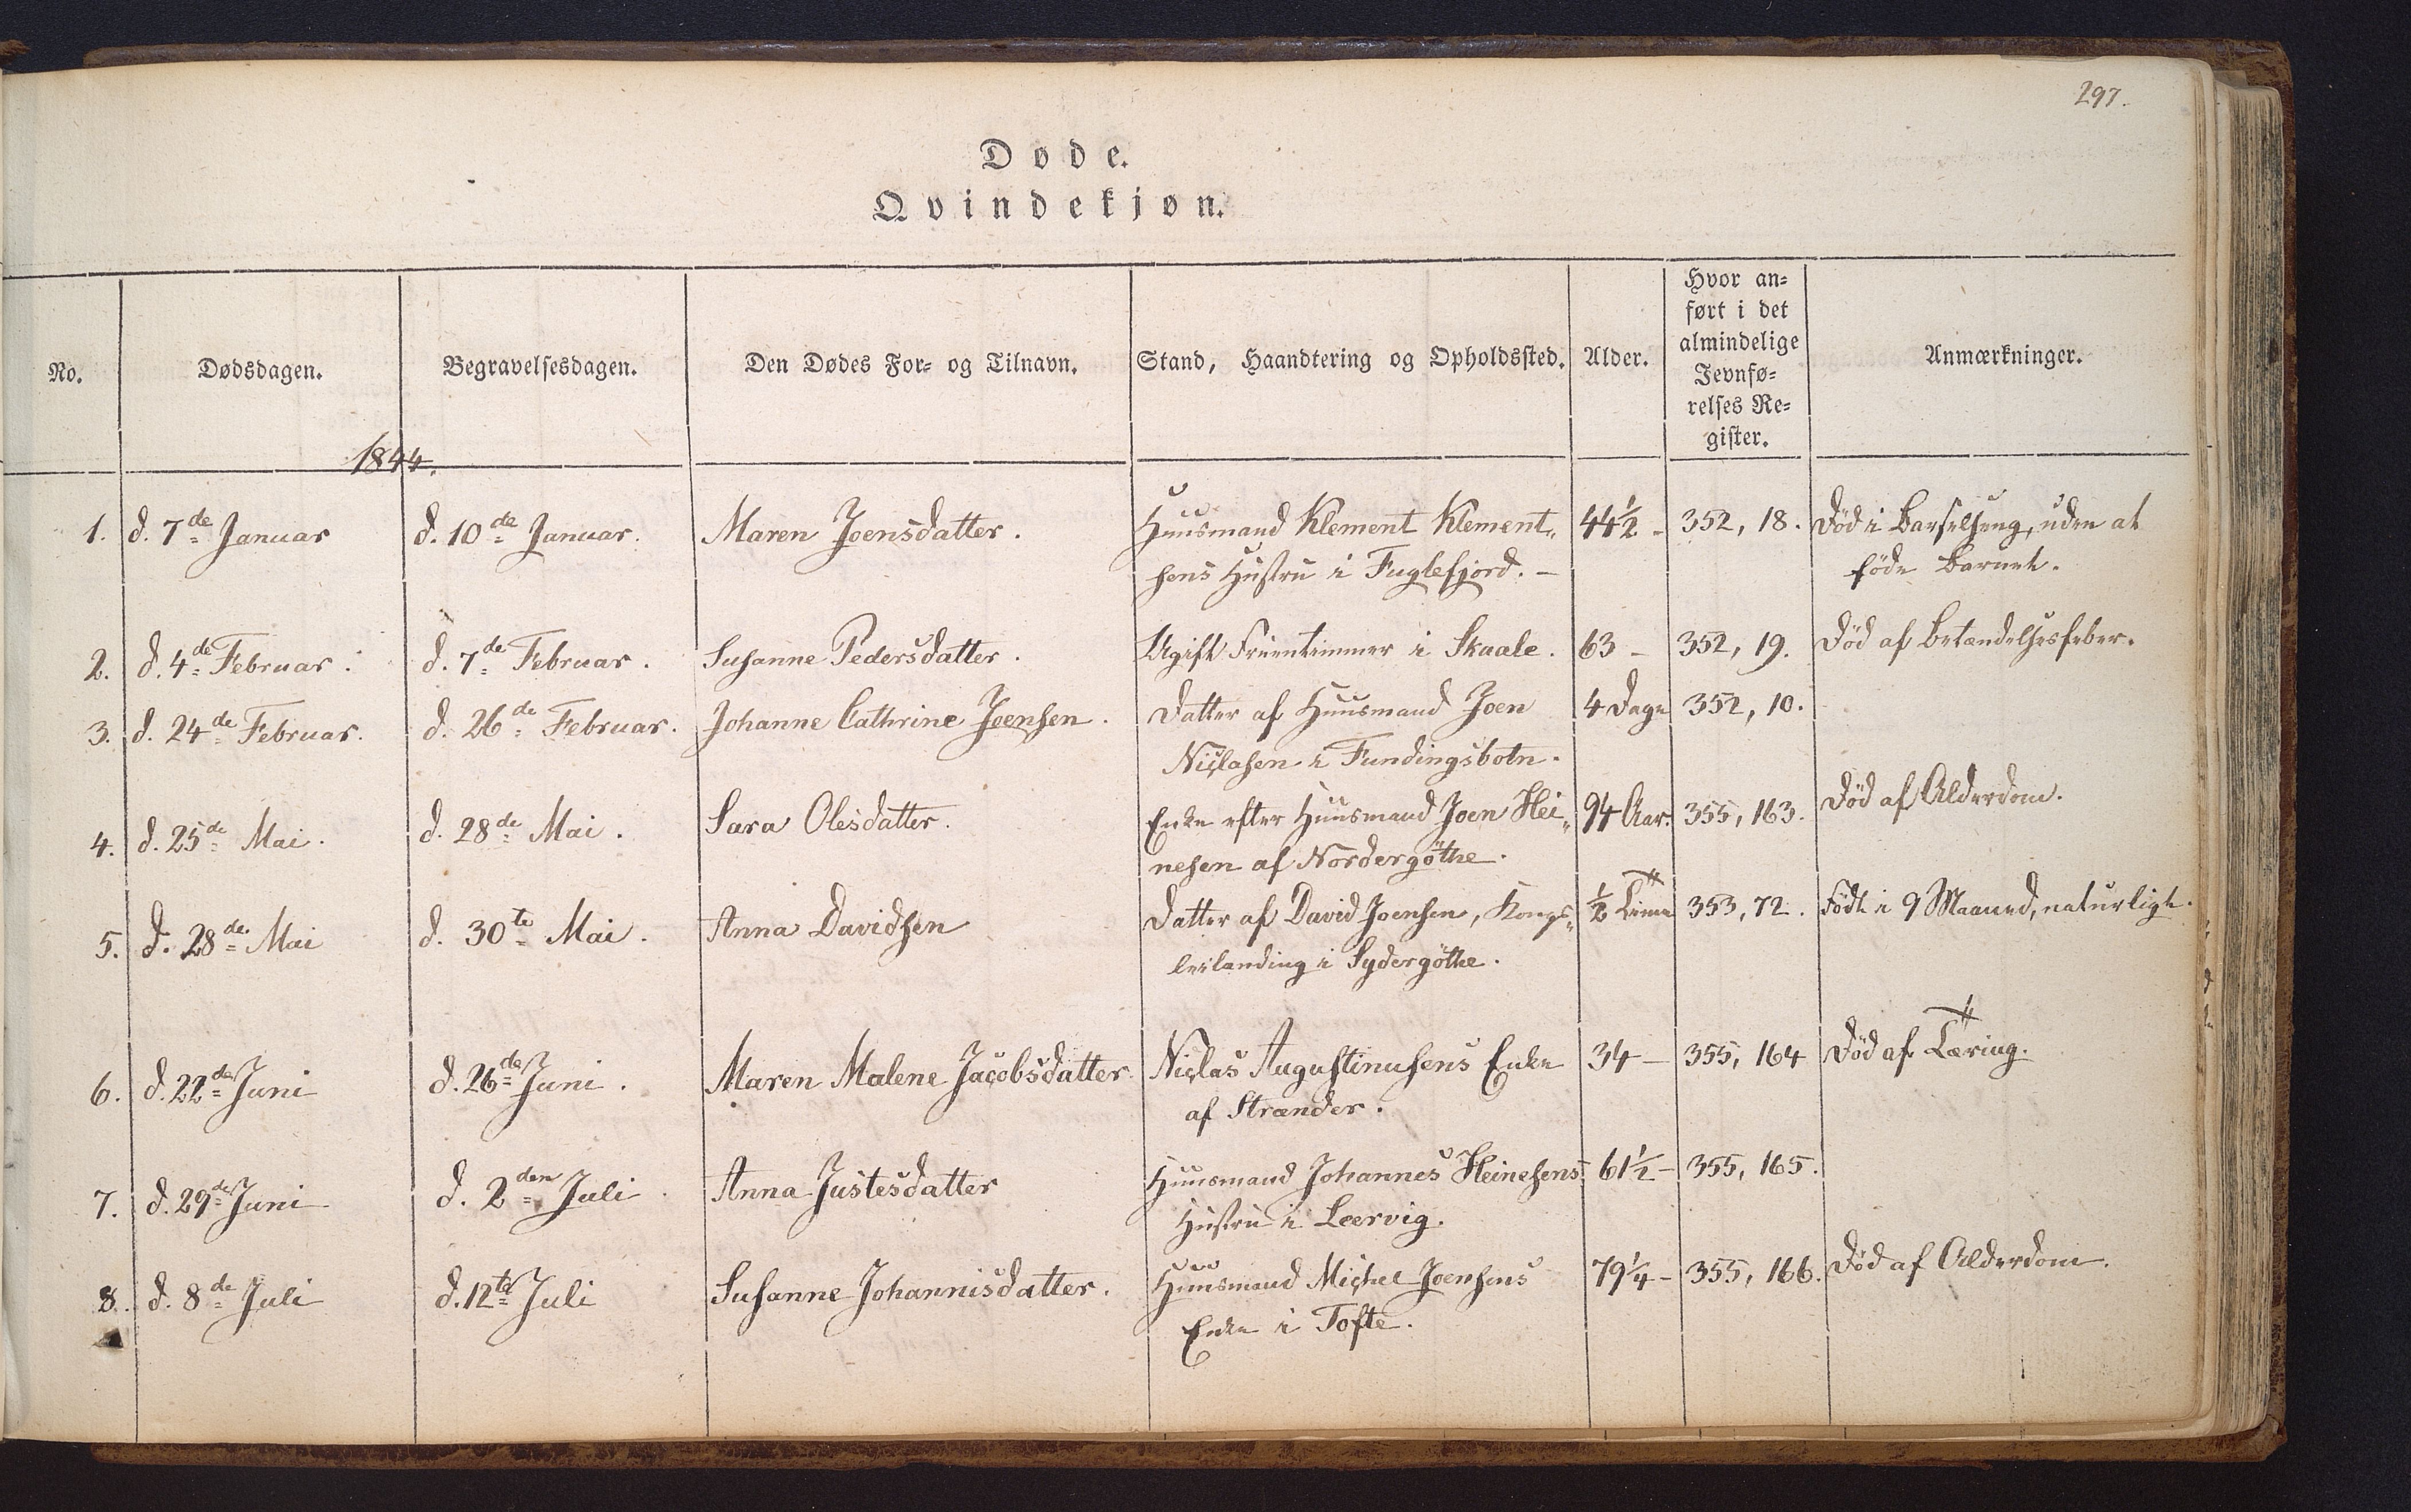 297.
Døde.
Qvindekjøn.
No.
Dødsdagen.
Begravelsesdagen.
Den Dødes For- og Tilnavn.
Stand, Haandtering og Opholdssted.
Alder.
Hvor an-
ført i det
almindelige
Jevnfø-
relses Re-
gister.
Anmærkninger.
1844.
1. d. 7de Januar d. 10de Januar. Maren Joensdatter. Huusmand Klement Klement- 44½ - 352, 18. Död i Barselseng, uden at
sens Hustru i Fuglefjord. - föde Barnet.
2. d. 4de Februar. d. 7de Februar. Susanne Pedersdatter. Ugift Fruentimmer i Skaale. 63 - 352, 19. Död af Betændelsesfeber.
3. d. 24de Februar. d. 26de Februar. Johanne Cathrine Joensen. Datter af Huusmand Joen 4 Dage 352, 10.
Niclasen i Fundingsbotn.
4. d. 25de Mai. d. 28de Mai. Sara Olesdatter. Enke efter Huusmand Joen Hei- 94 Aar. 355, 163. Död af Alderdom.
nesen af Nordergöthe.
5. d. 28de Mai d. 30te Mai. Anna Davidsen Datter af David Joensen, Kongs- ½ Time 353, 72. Födt i 9 Maaned, naturligt.
leilænding i Sydergöthe.
6. d. 22de Juni d. 26de Juni. Maren Malene Jacobsdatter. Niclas Augustinusens Enke 34 - 355, 164 Död af Tæring.
af Strænder.
7. d. 29de Juni d. 2den Juli. Anna Justesdatter Huusmand Johannes Heinesens 61½ - 355, 165.
Hustru i Leervig.
8. d. 8de Juli d. 12te Juli Susanne Johannisdatter. Huusmand Michel Joensens 79¼ - 355, 166. Död af Alderdom.
Enke i Tofte.